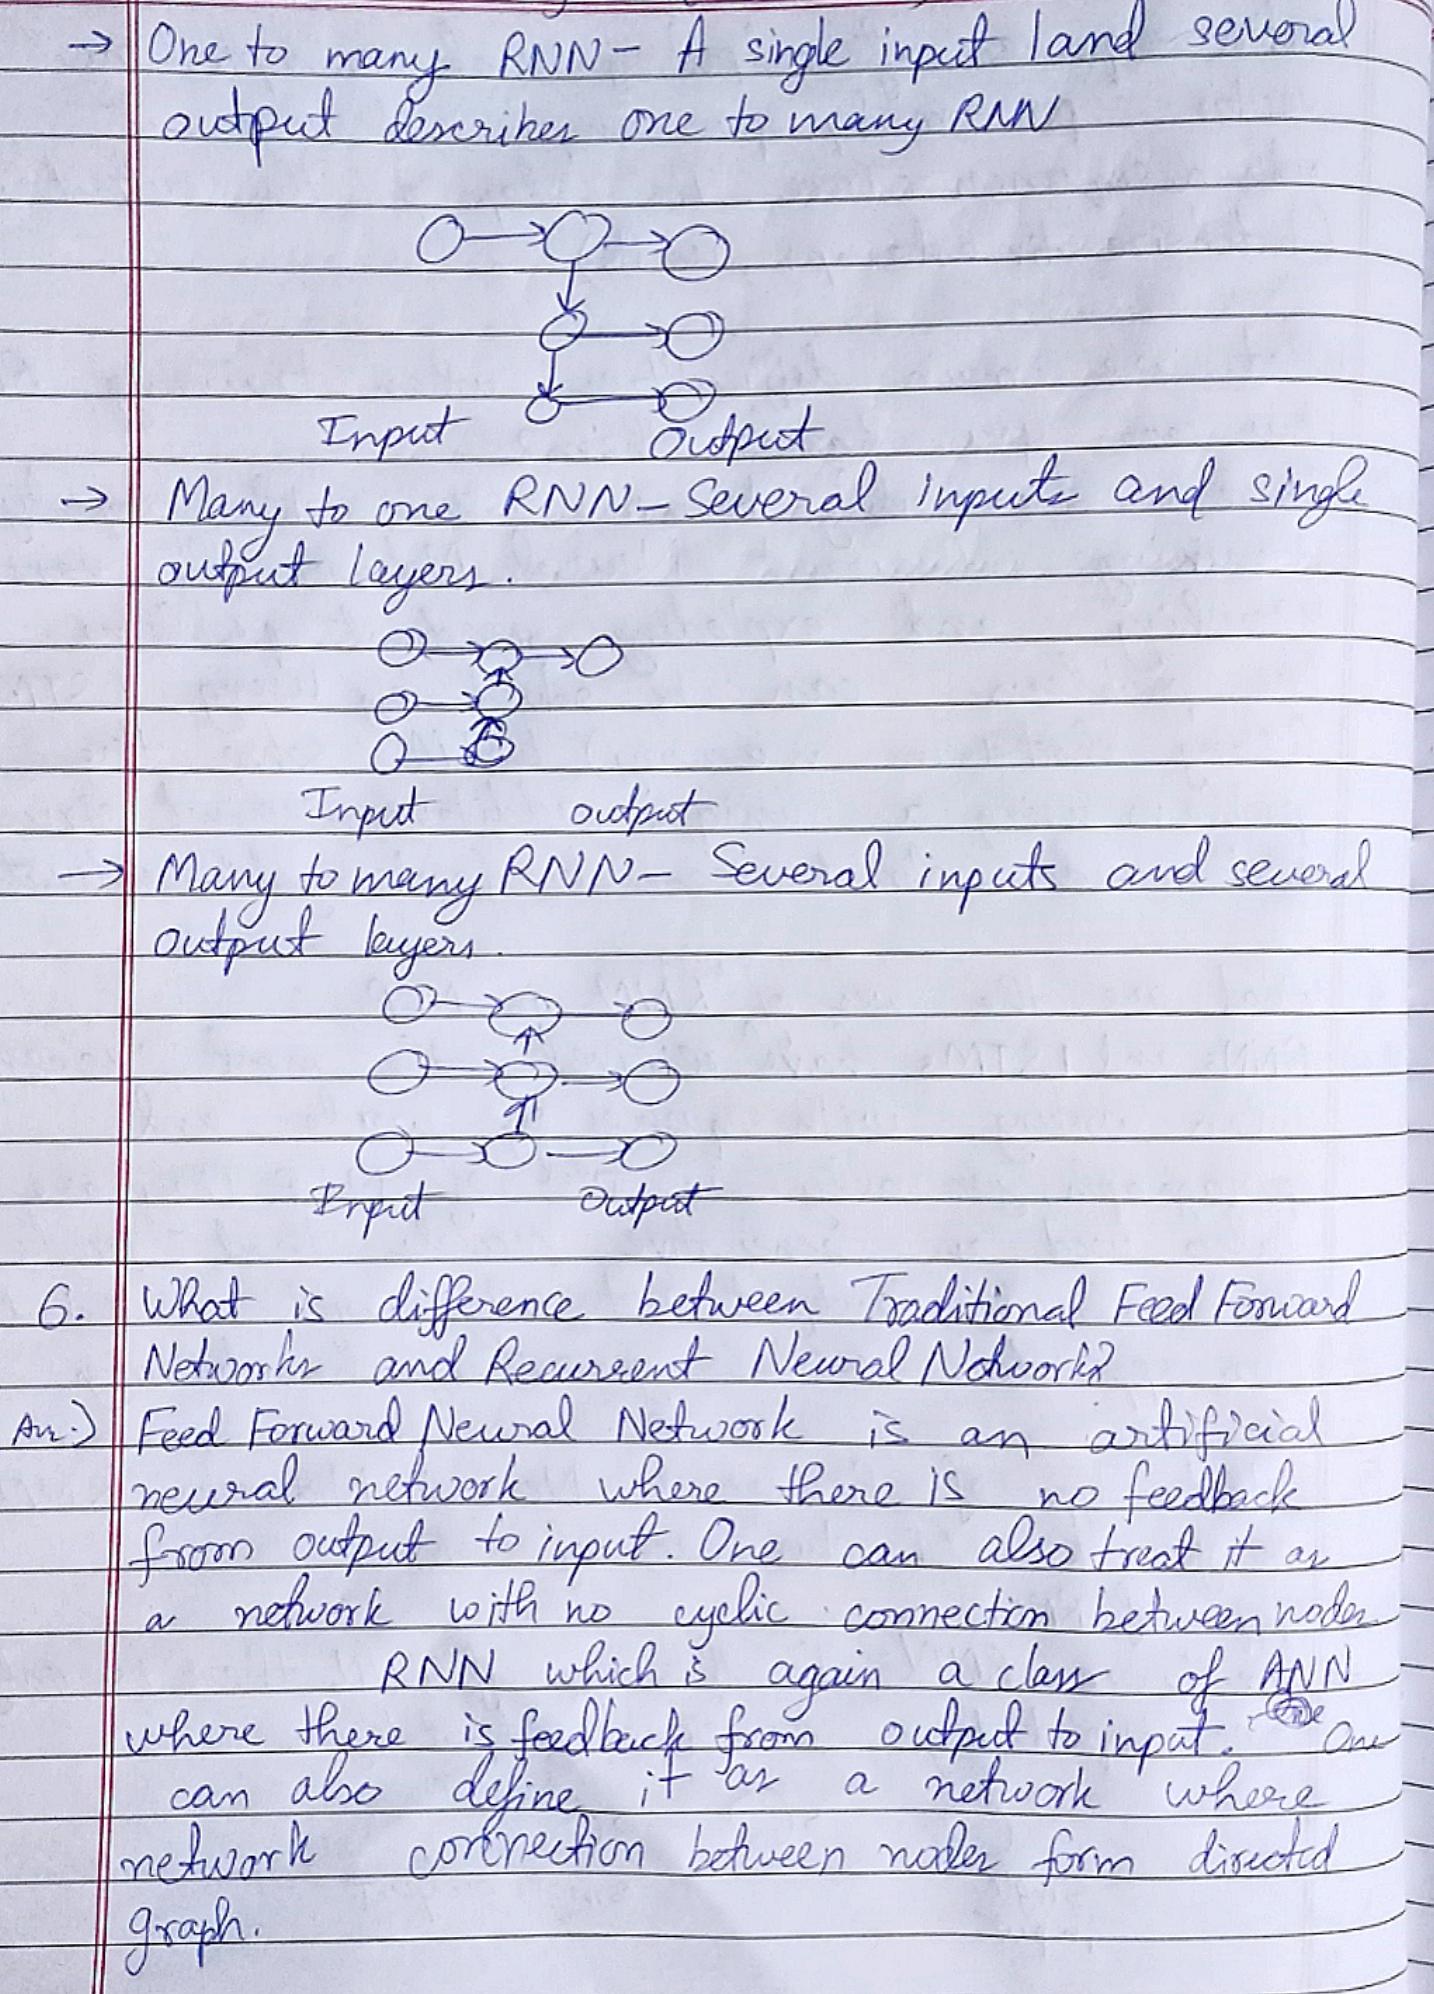 → One to many RNN - A single input land several
output describes one to many RNN
Input Output
→ Many to one RNN - Several inputs and single
output layers.
Input output
→ Many to many RNN - Several inputs and several
output layers.
Input Output
6. What is difference between Traditional Feed Forward
Networks and Recurrent Neural Network?
Ans.) Feed Forward Neural Network is an artificial
neural network where there is no feedback
from output to input. One can also treat it as
a network with no cyclic connection between nodes
RNN which is again a class of ANN
where there is feedback from output to input. One
can also define it as a network where
network connection between nodes form directed
graph.